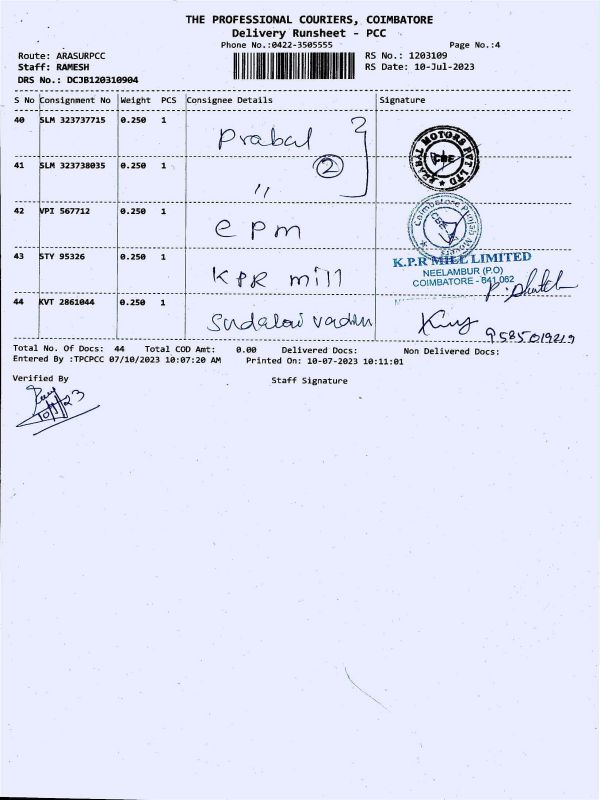 THE PROFESSIONAL COURIERS, COIMBATORE
Delivery Runsheet - PCC
Phone No.:0422-3505555
Page No.:4
Route: ARASURPCC
RS No.: 1203109
Staff: RAMESH
RS Date: 10-Jul-2023
DRS No.: DCJB120310904
S No Consignment No Weight PCS Consignee Details Signature
40 SLM 323737715 0.250 1 Prabal
41 SLM 323738035 0.250 1 "
2
PRABAL MOTORS PVT LTD
CBE
42 VPI 567712 0.250 1 epm
Coimbatore
43 STY 95326 0.250 1 KPR mill
K.P.R MILL LIMITED
NEELAMBUR (P.O)
COIMBATORE - 641 062
44 KVT 2861044 0.250 1
Total No. Of Docs: 44 Total COD Amt: 0.00 Delivered Docs: Non Delivered Docs:
Entered By :TPCPCC 07/10/2023 10:07:20 AM Printed On: 10-07-2023 10:11:01
Verified By
Staff Signature